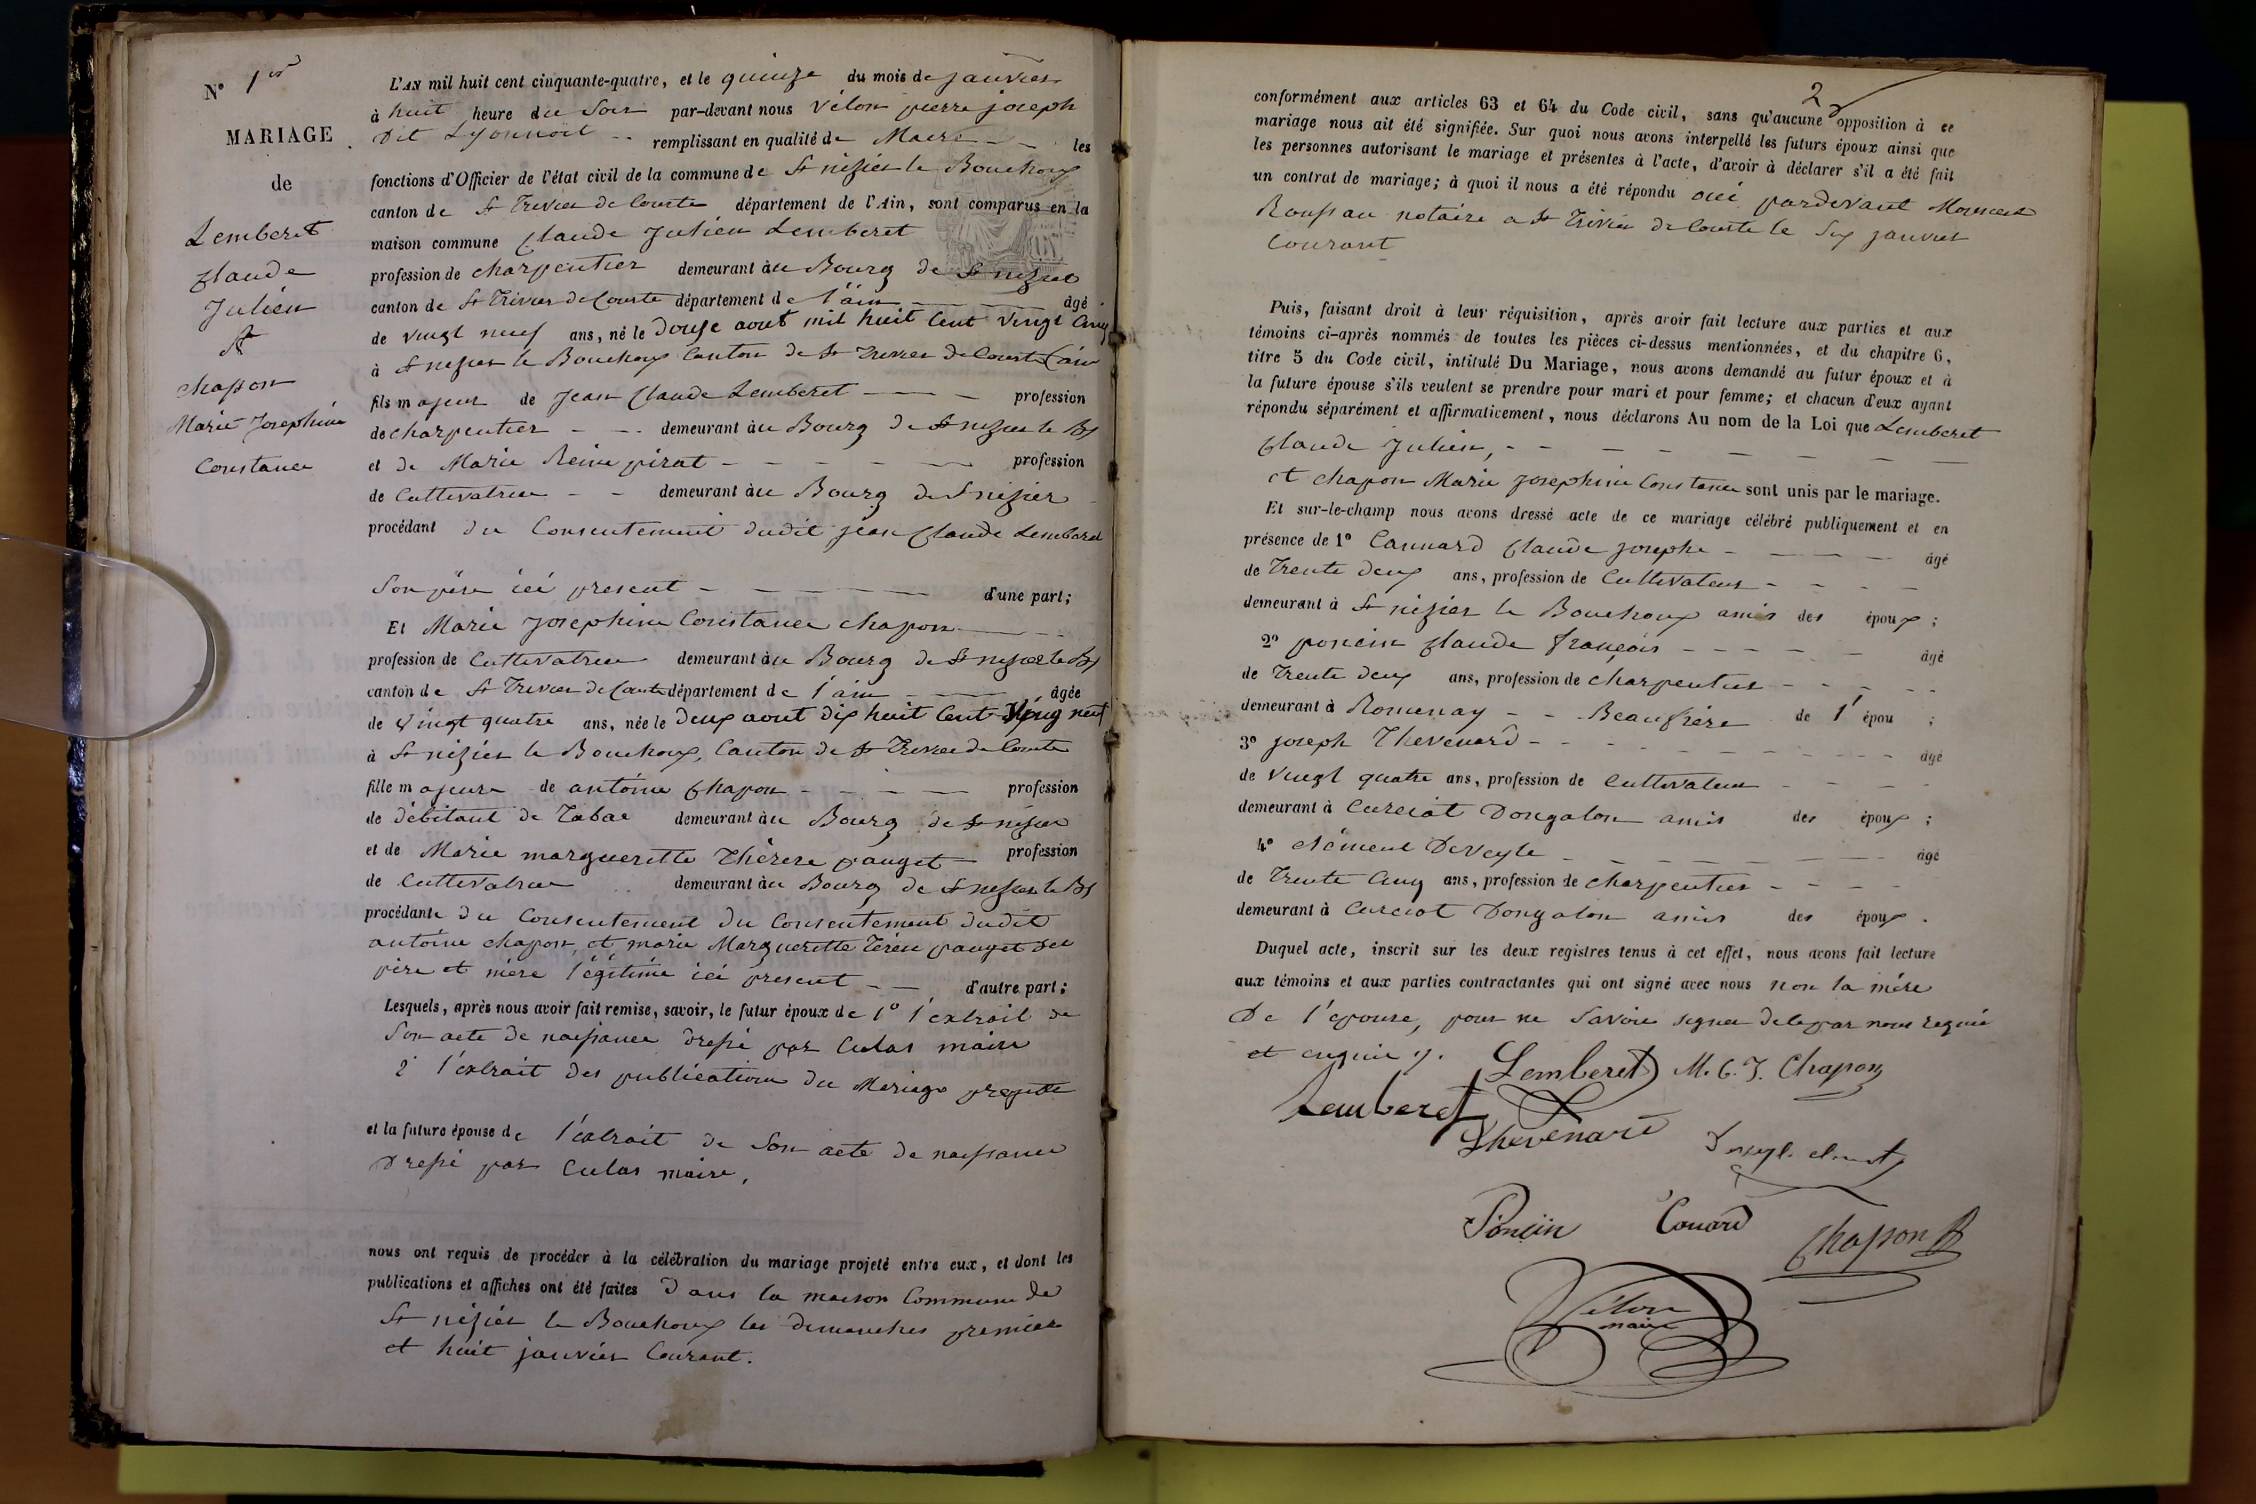 N° 1er
MARIAGE
de
Lemberet
Claude
Julien
Et
chapon
Marie Josephine
Constance
L'AN mil huit cent cinquante-quatre, et le quinze du mois de janvier
à huit heure du Soir par-devant nous Vélon pierre joseph
Dit Lyonnoit -- remplissant en qualité de Maire -- les
fonctions d'Officier de l'état civil de la commune de St nizier le Bouchoux
canton de St Trivier de Courte département de l'Ain, sont comparus en la
maison commune Claude Julien Lemberet
profession de charpentier demeurant au Bourg de St nizier
canton de St Trivier de Courte département de l'ain --- âgé
de vingt neuf ans, né le Douze aout mil huit Cent vingt Cinq
à St nizier le Bouchoux Canton de St Trivier de Courte (ain
fils majeur de Jean Claude Lemberet --- profession
de charpentier --- demeurant au Bourg de St nizier le Bx
et de Marie Reine pirat --- profession
de Cultivatrice -- demeurant au Bourg de St nizier
procédant du Consentement dudit jean Claude Lemberet
Son père ici present --- d'une part;
Et Marie Josephine Constance chapon ---
profession de Cultivatrice demeurant au Bourg de St nizier le Bx
canton de St Trivier de Courte département de l'ain --- âgée
de vingt quatre ans, née le Deux aout dix huit Cent vingt neuf
à St nizier le Bouchoux, Canton de St Trivier de Courte
fille majeure de antoine Chapon --- profession
de débitant de Tabac demeurant au Bourg de St nizier
et de Marie marguerette Thérese pauget -- profession
de Cultivatrice demeurant au Bourg de St nizier le Bx
procédante du Consentement du Consentement dudit
antoine chapon, et marie Marguerette Térese pauget ses
père et mère légitime ici present -- d'autre part;
Lesquels, après nous avoir fait remise, savoir, le futur époux de 1° l'extrait de
Son acte de naissance dressé par Culas maire
2° l'extrait des publications du Mariage projetté
et la future épouse de l'extrait de Son acte de naissance
Dressé par Culas maire,
nous ont requis de procéder à la célébration du mariage projeté entre eux, et dont les
publications et affiches ont été faites Dans la maison Commune de
St nizier le Bouchoux les dimanches premier
et huit janvier Courant.
2
conformément aux articles 63 et 64 du Code civil, sans qu'aucune opposition à ce
mariage nous ait été signifiée. Sur quoi nous avons interpellé les futurs époux ainsi que
les personnes autorisant le mariage et présentes à l'acte, d'avoir à déclarer s'il a été fait
un contrat de mariage; à quoi il nous a été répondu oui pardevant
notaire a St Trivier de Courte le Six janvier
Courant
Puis, faisant droit à leur réquisition, après avoir fait lecture aux parties et aux
témoins ci-après nommés de toutes les pièces ci-dessus mentionnées, et du chapitre 6,
titre 5 du Code civil, intitulé Du Mariage, nous avons demandé au futur époux et à
la future épouse s'ils veulent se prendre pour mari et pour femme; et chacun d'eux ayant
répondu séparément et affirmativement, nous déclarons Au nom de la Loi que Lemberet
Claude Julien, ---
et chapon Marie Josephine Constance sont unis par le mariage.
Et sur-le-champ nous avons dressé acte de ce mariage célébré publiquement et en
présence de 1° Cannard Claude Josephe --- âgé
de Trente deux ans, profession de Cultivateur ---
demeurant à St nizier le Bouchoux amis des époux;
2° poncin Claude françois --- âgé
de Trente deux ans, profession de charpentier ---
demeurant à Romenay -- Beaufrère de l'épou;
3° joseph Thevenard --- âgé
de vingt quatre ans, profession de Cultivateur ---
demeurant à Curciat Dongalon amis des époux;
4° clément Deveyle --- âgé
de Trente Cinq ans, profession de charpentier ---
demeurant à Curciat Dongalon amis des époux.
Duquel acte, inscrit sur les deux registres tenus à cet effet, nous avons fait lecture
aux témoins et aux parties contractantes qui ont signé avec nous non la mére
De l'epouse, pour ne Savoir signer de le par nous requie
et enquie
Lemberet M. C. J. Chapon
Lemberet
Thevenard
Poncin Chapon
Vélon
maire